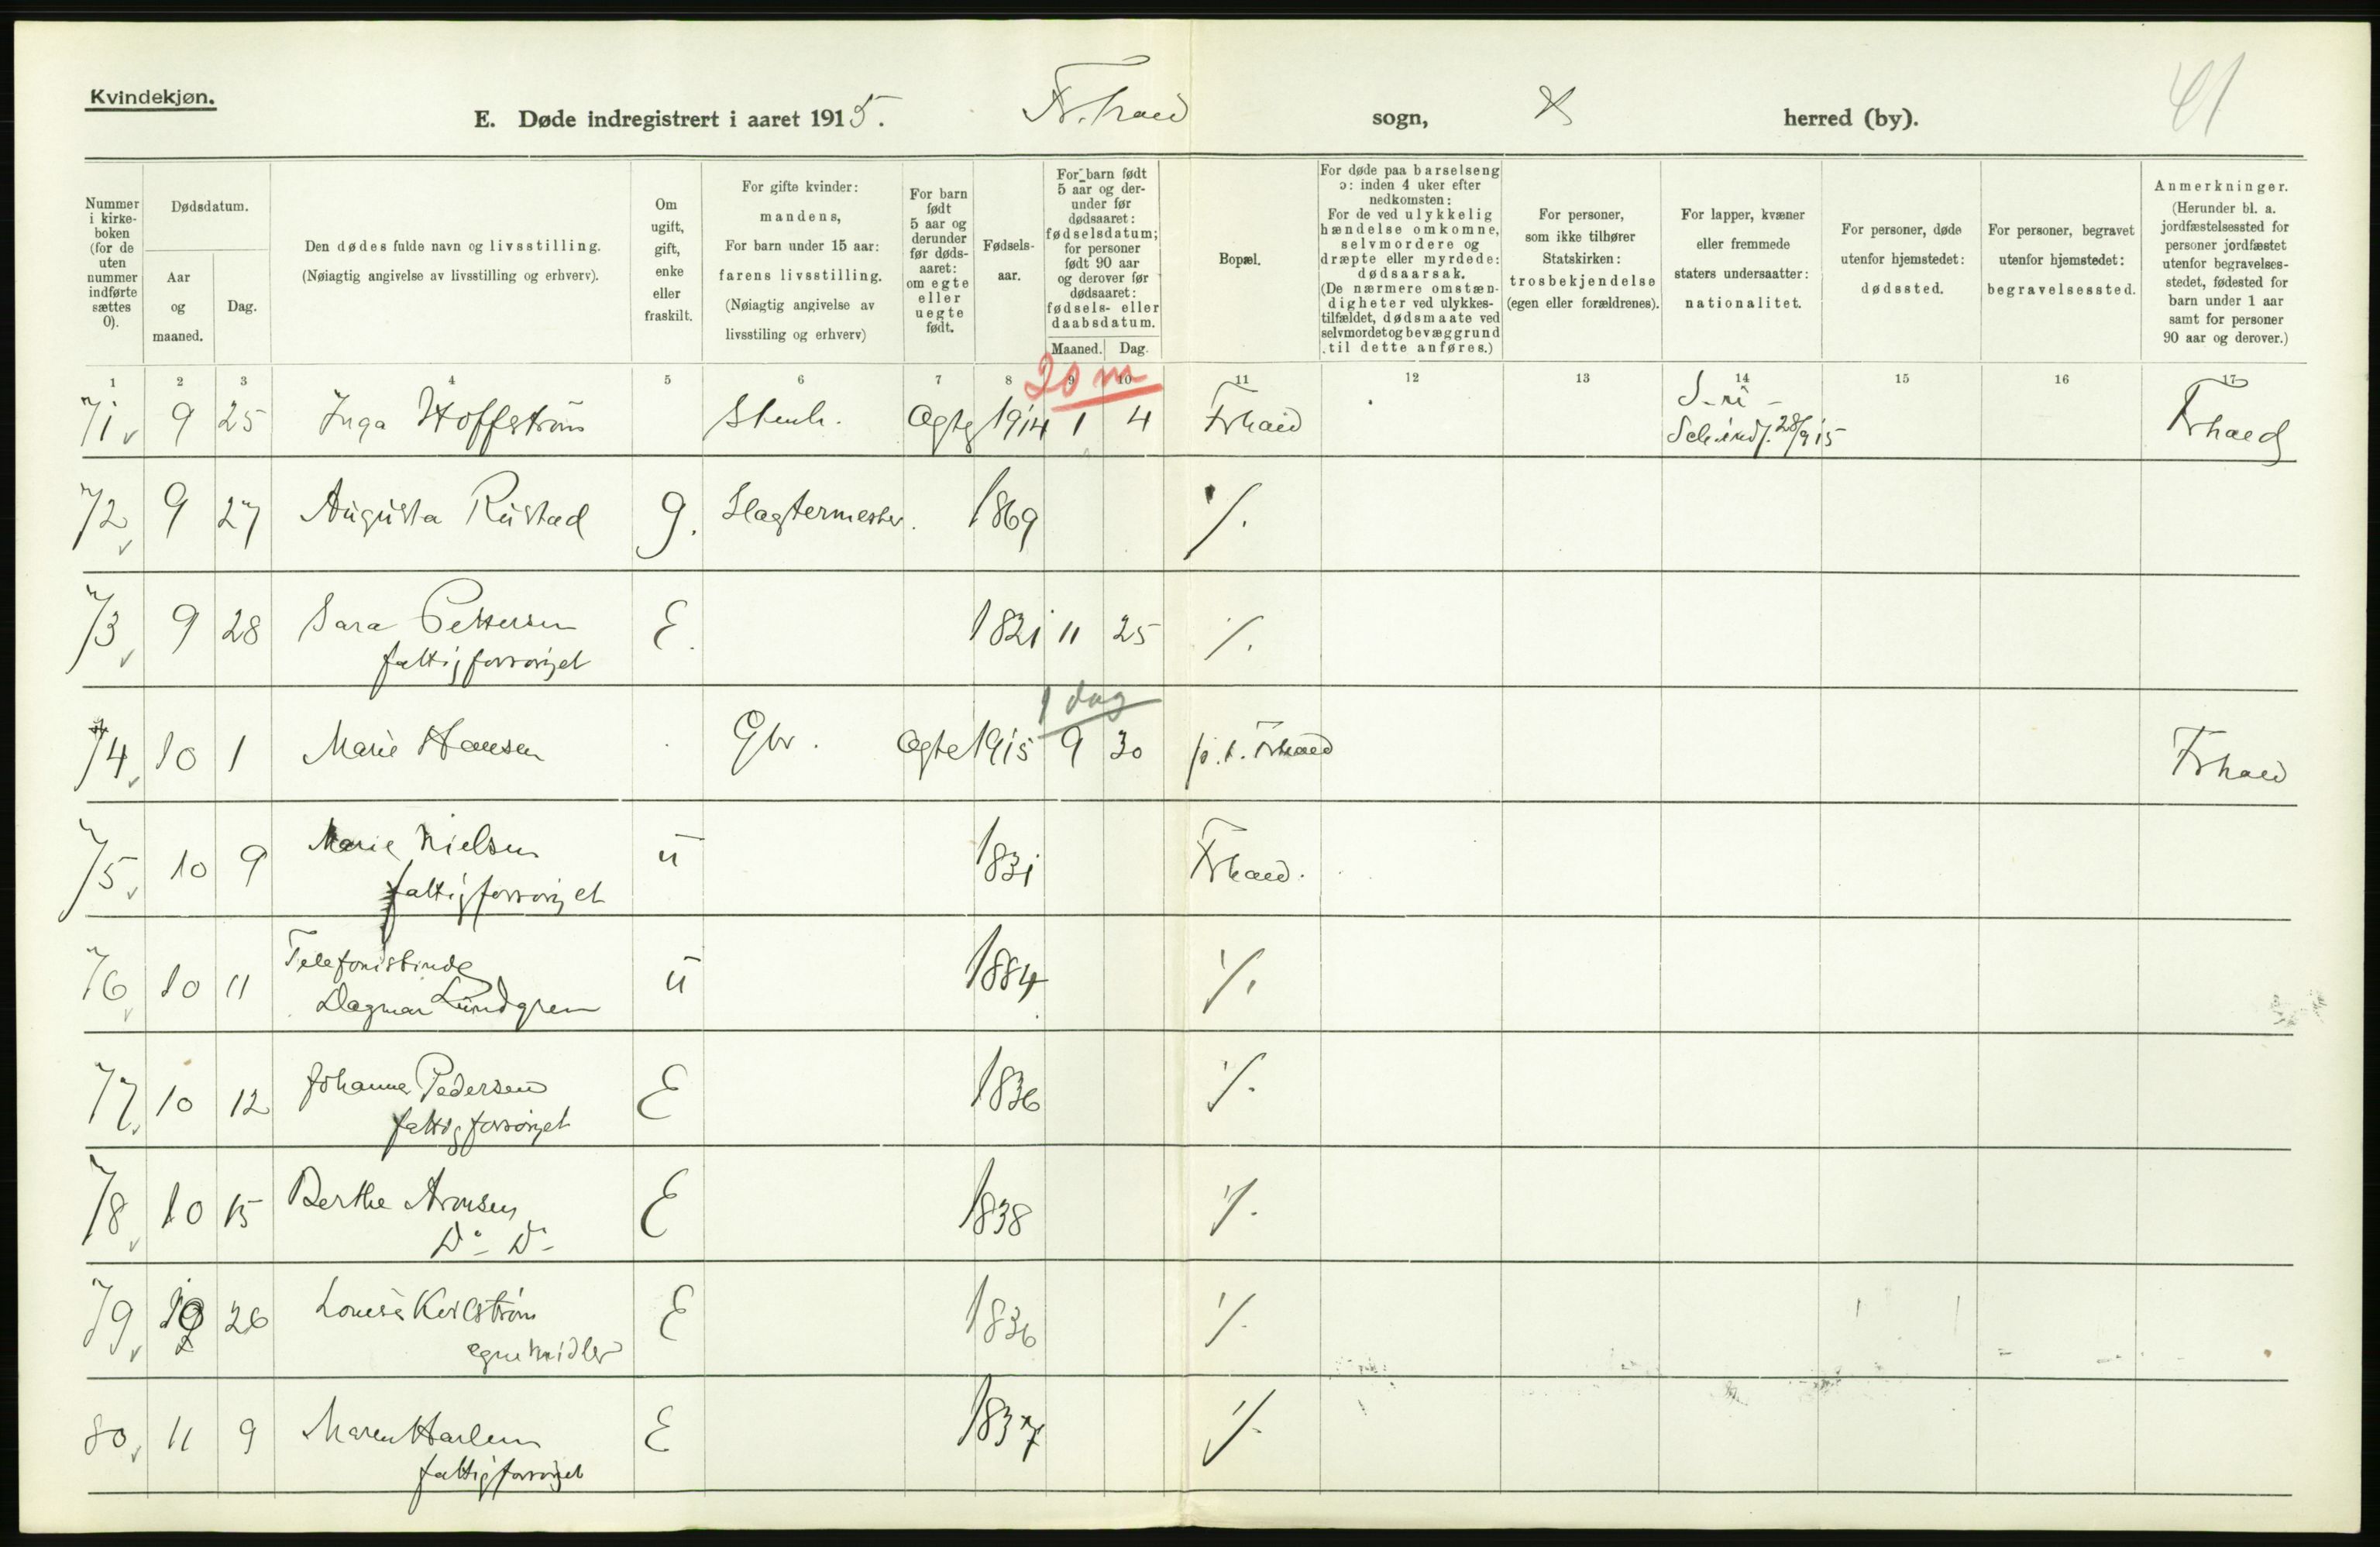 Kvindekjøn.
E. Døde indregistrert i aaret 1915. Fr.hald sogn, herred (by).
41
Nummer i kirke-boken (for de uten nummer indførte sættes 0).
Dødsdatum.
Aar og maaned.
Dag.
Den dødes fulde navn og livsstilling.
(Nøiagtig angivelse av livsstilling og erhverv).
Om ugift, gift, enke eller fraskilt.
For gifte kvinder: mandens,
For barn under 15 aar: farens livsstilling.
(Nøiagtig angivelse av livsstiling og erhverv)
For barn født 5 aar og derunder før døds-aaret: om egte eller uegte født.
Fødsels-aar.
For barn født 5 aar og der-under før dødsaaret: fødselsdatum; for personer født 90 aar og derover før dødsaaret: fødsels- eller daabsdatum.
Maaned. Dag.
Bopæl.
For døde paa barselseng ɔ: inden 4 uker efter nedkomsten:
For de ved ulykkelig hændelse omkomne, selvmordere og dræpte eller myrdede: dødsaarsak.
(De nærmere omstæn-digheter ved ulykkes-tilfældet, dødsmaate ved selvmordet og bevæggrund til dette anføres.)
For personer, som ikke tilhører Statskirken: trosbekjendelse (egen eller forældrenes).
For lapper, kvæner eller fremmede staters undersaatter: nationalitet.
For personer, døde utenfor hjemstedet: dødssted.
For personer, begravet utenfor hjemstedet: begravelsessted.
Anmerkninger.
(Herunder bl. a. jordfæstelsessted for personer jordfæstet utenfor begravelses-stedet, fødested for barn under 1 aar samt for personer 90 aar og derover.)
1 2 3 4 5 6 7 8 9 10 11 12 13 14 15 16 17
20 m
71 9 25 Inga Hoffstrøm Stenh. Ægte 1914 1 4 Frhald 28/9 15 Frhald
72 9 27 Augusta Rustad g. Slagtermester. 1869 ‰
73 9 28 Sara Pettersen E. 1821 11 25 ‰
fattigforsørget
1 dag
74 10 1 Marie Hansen Gbr. Ægte 1915 9 30 p.t. Frhald Frhald
75 10 9 Marie Nielsen u 1831 Frhald.
fattigforsørget
76 10 11 Telefonistinde u 1884 ‰
Dagmar Lundgren
77 10 12 Johanne Pedersen E 1836 ‰
fattigforsørget
78 10 15 Berthe Aronsen E 1838 ‰
Do - Do -
79 26 Louise Kvilstrøm E 1836 ‰
egne midler
80 11 9 Maren Harlem E 1837 ‰
fattigforsørget